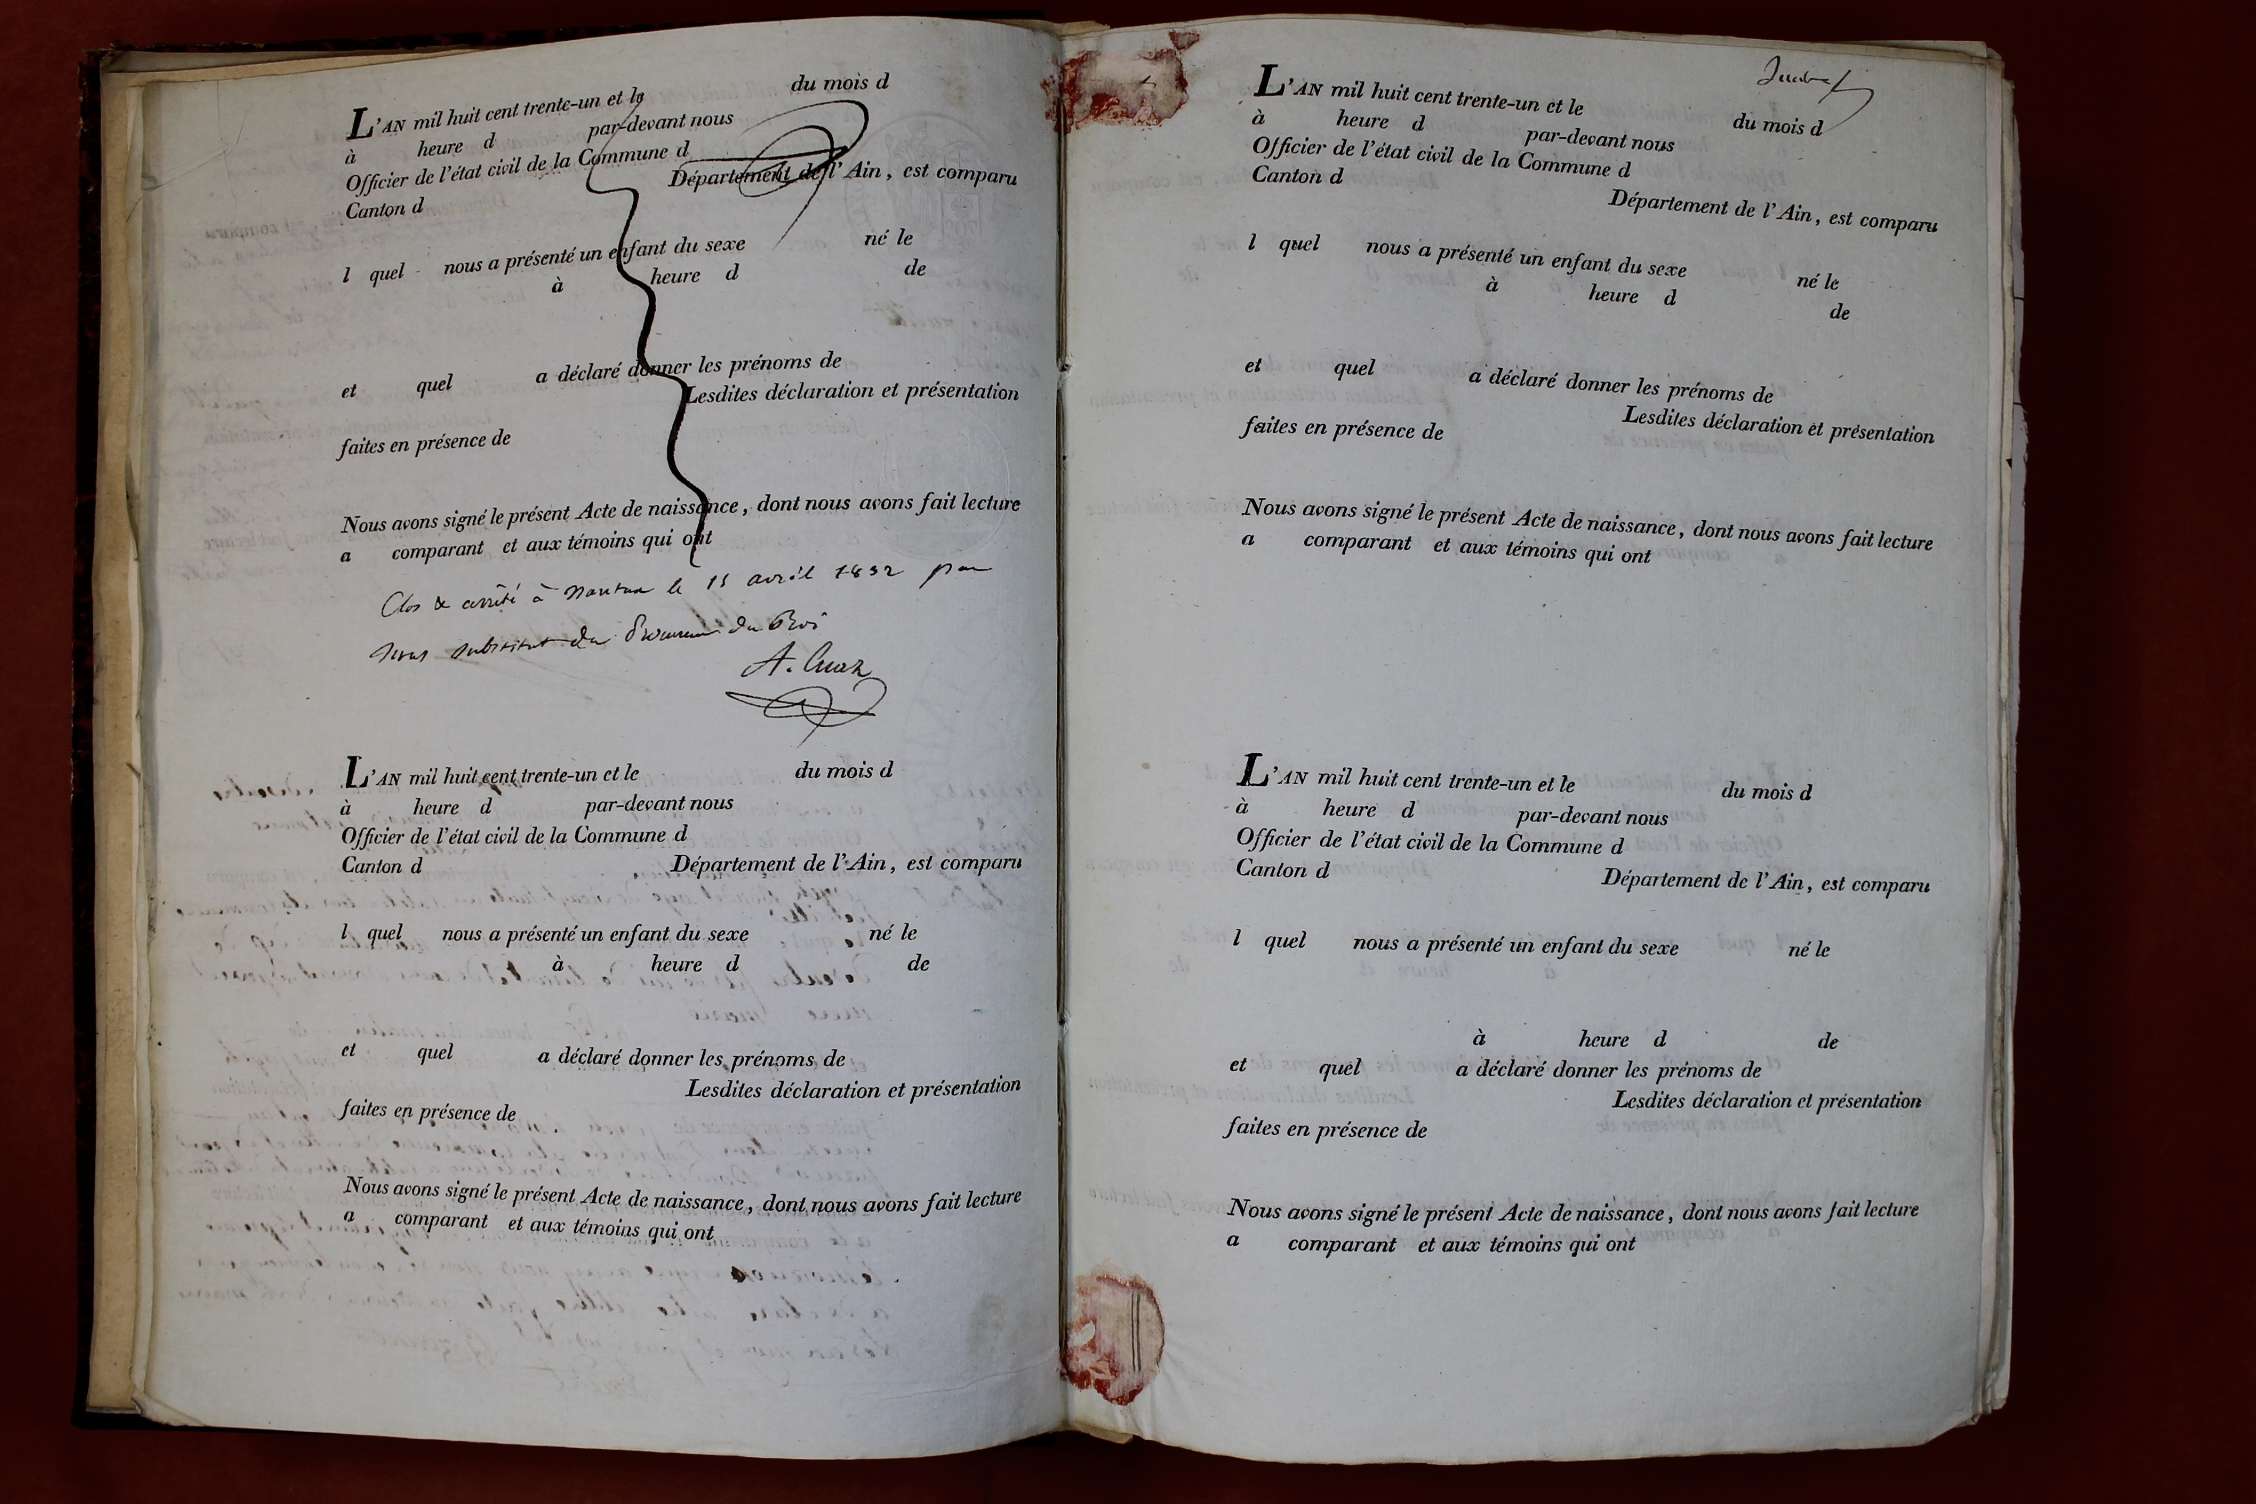 L'AN mil huit cent trente-un et le du mois d
à heure d par-devant nous
Officier de l'état civil de la Commune d
Canton d Département de l'Ain, est comparu
l quel nous a présenté un enfant du sexe né le
à heure d de
et quel a déclaré donner les prénoms de
Lesdites déclaration et présentation
faites en présence de
Nous avons signé le présent Acte de naissance, dont nous avons fait lecture
a comparant et aux témoins qui ont
Clos & arrêté à Nantua le 15 avril 1832 par
nous substitut du Procureur du Roi
L'AN mil huit cent trente-un et le du mois d
à heure d par-devant nous
Officier de l'état civil de la Commune d
Canton d Département de l'Ain, est comparu
l quel nous a présenté un enfant du sexe né le
à heure d de
et quel a déclaré donner les prénoms de
Lesdites déclaration et présentation
faites en présence de
Nous avons signé le présent Acte de naissance, dont nous avons fait lecture
a comparant et aux témoins qui ont
L'AN mil huit cent trente-un et le du mois d
à heure d par-devant nous
Officier de l'état civil de la Commune d
Canton d Département de l'Ain, est comparu
l quel nous a présenté un enfant du sexe né le
à heure d de
et quel a déclaré donner les prénoms de
Lesdites déclaration et présentation
faites en présence de
Nous avons signé le présent Acte de naissance, dont nous avons fait lecture
a comparant et aux témoins qui ont
L'AN mil huit cent trente-un et le du mois d
à heure d par-devant nous
Officier de l'état civil de la Commune d
Canton d Département de l'Ain, est comparu
l quel nous a présenté un enfant du sexe né le
à heure d de
et quel a déclaré donner les prénoms de
Lesdites déclaration et présentation
faites en présence de
Nous avons signé le présent Acte de naissance, dont nous avons fait lecture
a comparant et aux témoins qui ont